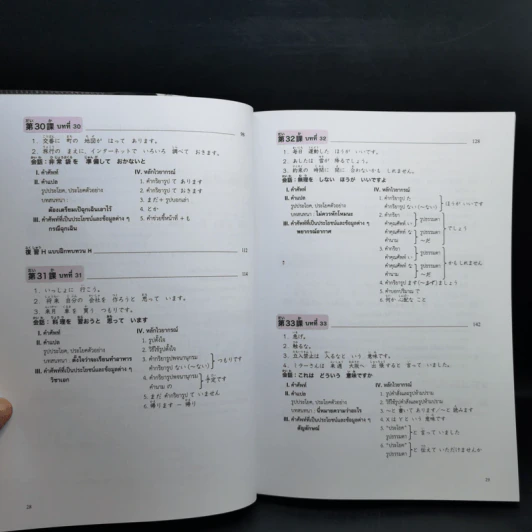 第30課 บทที่ 30
1. 交番に 町の 地図が はって あります。
2. 旅行の まえに、インターネットで いろいろ 調べて おきます。
会話：非常袋を 準備して おかないと
I. คำศัพท์
II. คำแปล
รูปประโยค, ประโยคตัวอย่าง
บทสนทนา :
ต้องเตรียมเป้ฉุกเฉินเอาไว้
III. คำศัพท์ที่เป็นประโยชน์และข้อมูลต่าง ๆ
กรณีฉุกเฉิน
IV. หลักไวยากรณ์
1. คำกริยารูป て あります
2. คำกริยารูป て おきます
3. まだ + รูปบอกเล่า
4. とか
5. คำช่วยชี้หน้าที่ + も
復習 H แบบฝึกทบทวน H
第31課 บทที่ 31
1. いっしょに 行こう。
2. 将来 自分の 会社を 作ろうと 思って います。
3. 来月 車を 買う つもりです。
会話：料理を 習おうと 思って います
I. คำศัพท์
II. คำแปล
รูปประโยค, ประโยคตัวอย่าง
บทสนทนา : ตั้งใจว่าจะเรียนทำอาหาร
III. คำศัพท์ที่เป็นประโยชน์และข้อมูลต่าง ๆ
วิชาเอก
IV. หลักไวยากรณ์
1. รูปตั้งใจ
2. วิธีใช้รูปตั้งใจ
3. คำกริยารูปพจนานุกรม
คำกริยารูป ない (〜ない)
つもりです
4. คำกริยารูปพจนานุกรม
คำนาม の
予定です
5. まだ คำกริยารูป て いません
6. 帰ります ー 帰り
28
第32課 บทที่ 32
128
1. 毎日 運動した ほうが いいです。
2. あしたは 雪が 降るでしょう。
3. 約束の 時間に 間に 合わないかも しれません。
会話：無理を しない ほうが いいですよ
I. คำศัพท์
II. คำแปล
รูปประโยค, ประโยคตัวอย่าง
บทสนทนา : ไม่ควรหักโหมนะ
III. คำศัพท์ที่เป็นประโยชน์และข้อมูลต่าง ๆ
พยากรณ์อากาศ
IV. หลักไวยากรณ์
1. คำกริยารูป た
คำกริยารูป ない (〜ない)
ほうが いいです
2. คำกริยา
คำคุณศัพท์ い
คำคุณศัพท์ な
คำนาม
รูปธรรมดา
〜だ
でしょう
3. คำกริยา
คำคุณศัพท์ い
คำคุณศัพท์ な
คำนาม
รูปธรรมดา
〜だ
かも しれません
4. คำกริยารูป ます (〜ます) ましょう
5. คำบอกปริมาณ で
6. 何か 心配な こと
第33課 บทที่ 33
142
1. 急げ。
2. 触るな。
3. 立入禁止は 入るなと いう 意味です。
4. ミラーさんは 来週 大阪へ 出張すると 言って いました。
会話：これは どういう 意味ですか
I. คำศัพท์
II. คำแปล
รูปประโยค, ประโยคตัวอย่าง
บทสนทนา : นี่หมายความว่าอะไร
III. คำศัพท์ที่เป็นประโยชน์และข้อมูลต่าง ๆ
สัญลักษณ์
IV. หลักไวยากรณ์
1. รูปคำสั่งและรูปห้ามปราม
2. วิธีใช้รูปคำสั่งและรูปห้ามปราม
3. 〜と 書いて あります/〜と 読みます
4. X は Y と いう 意味です
5. "ประโยค"
รูปธรรมดา
と 言って いました
6. "ประโยค"
รูปธรรมดา
と 伝えて いただけませんか